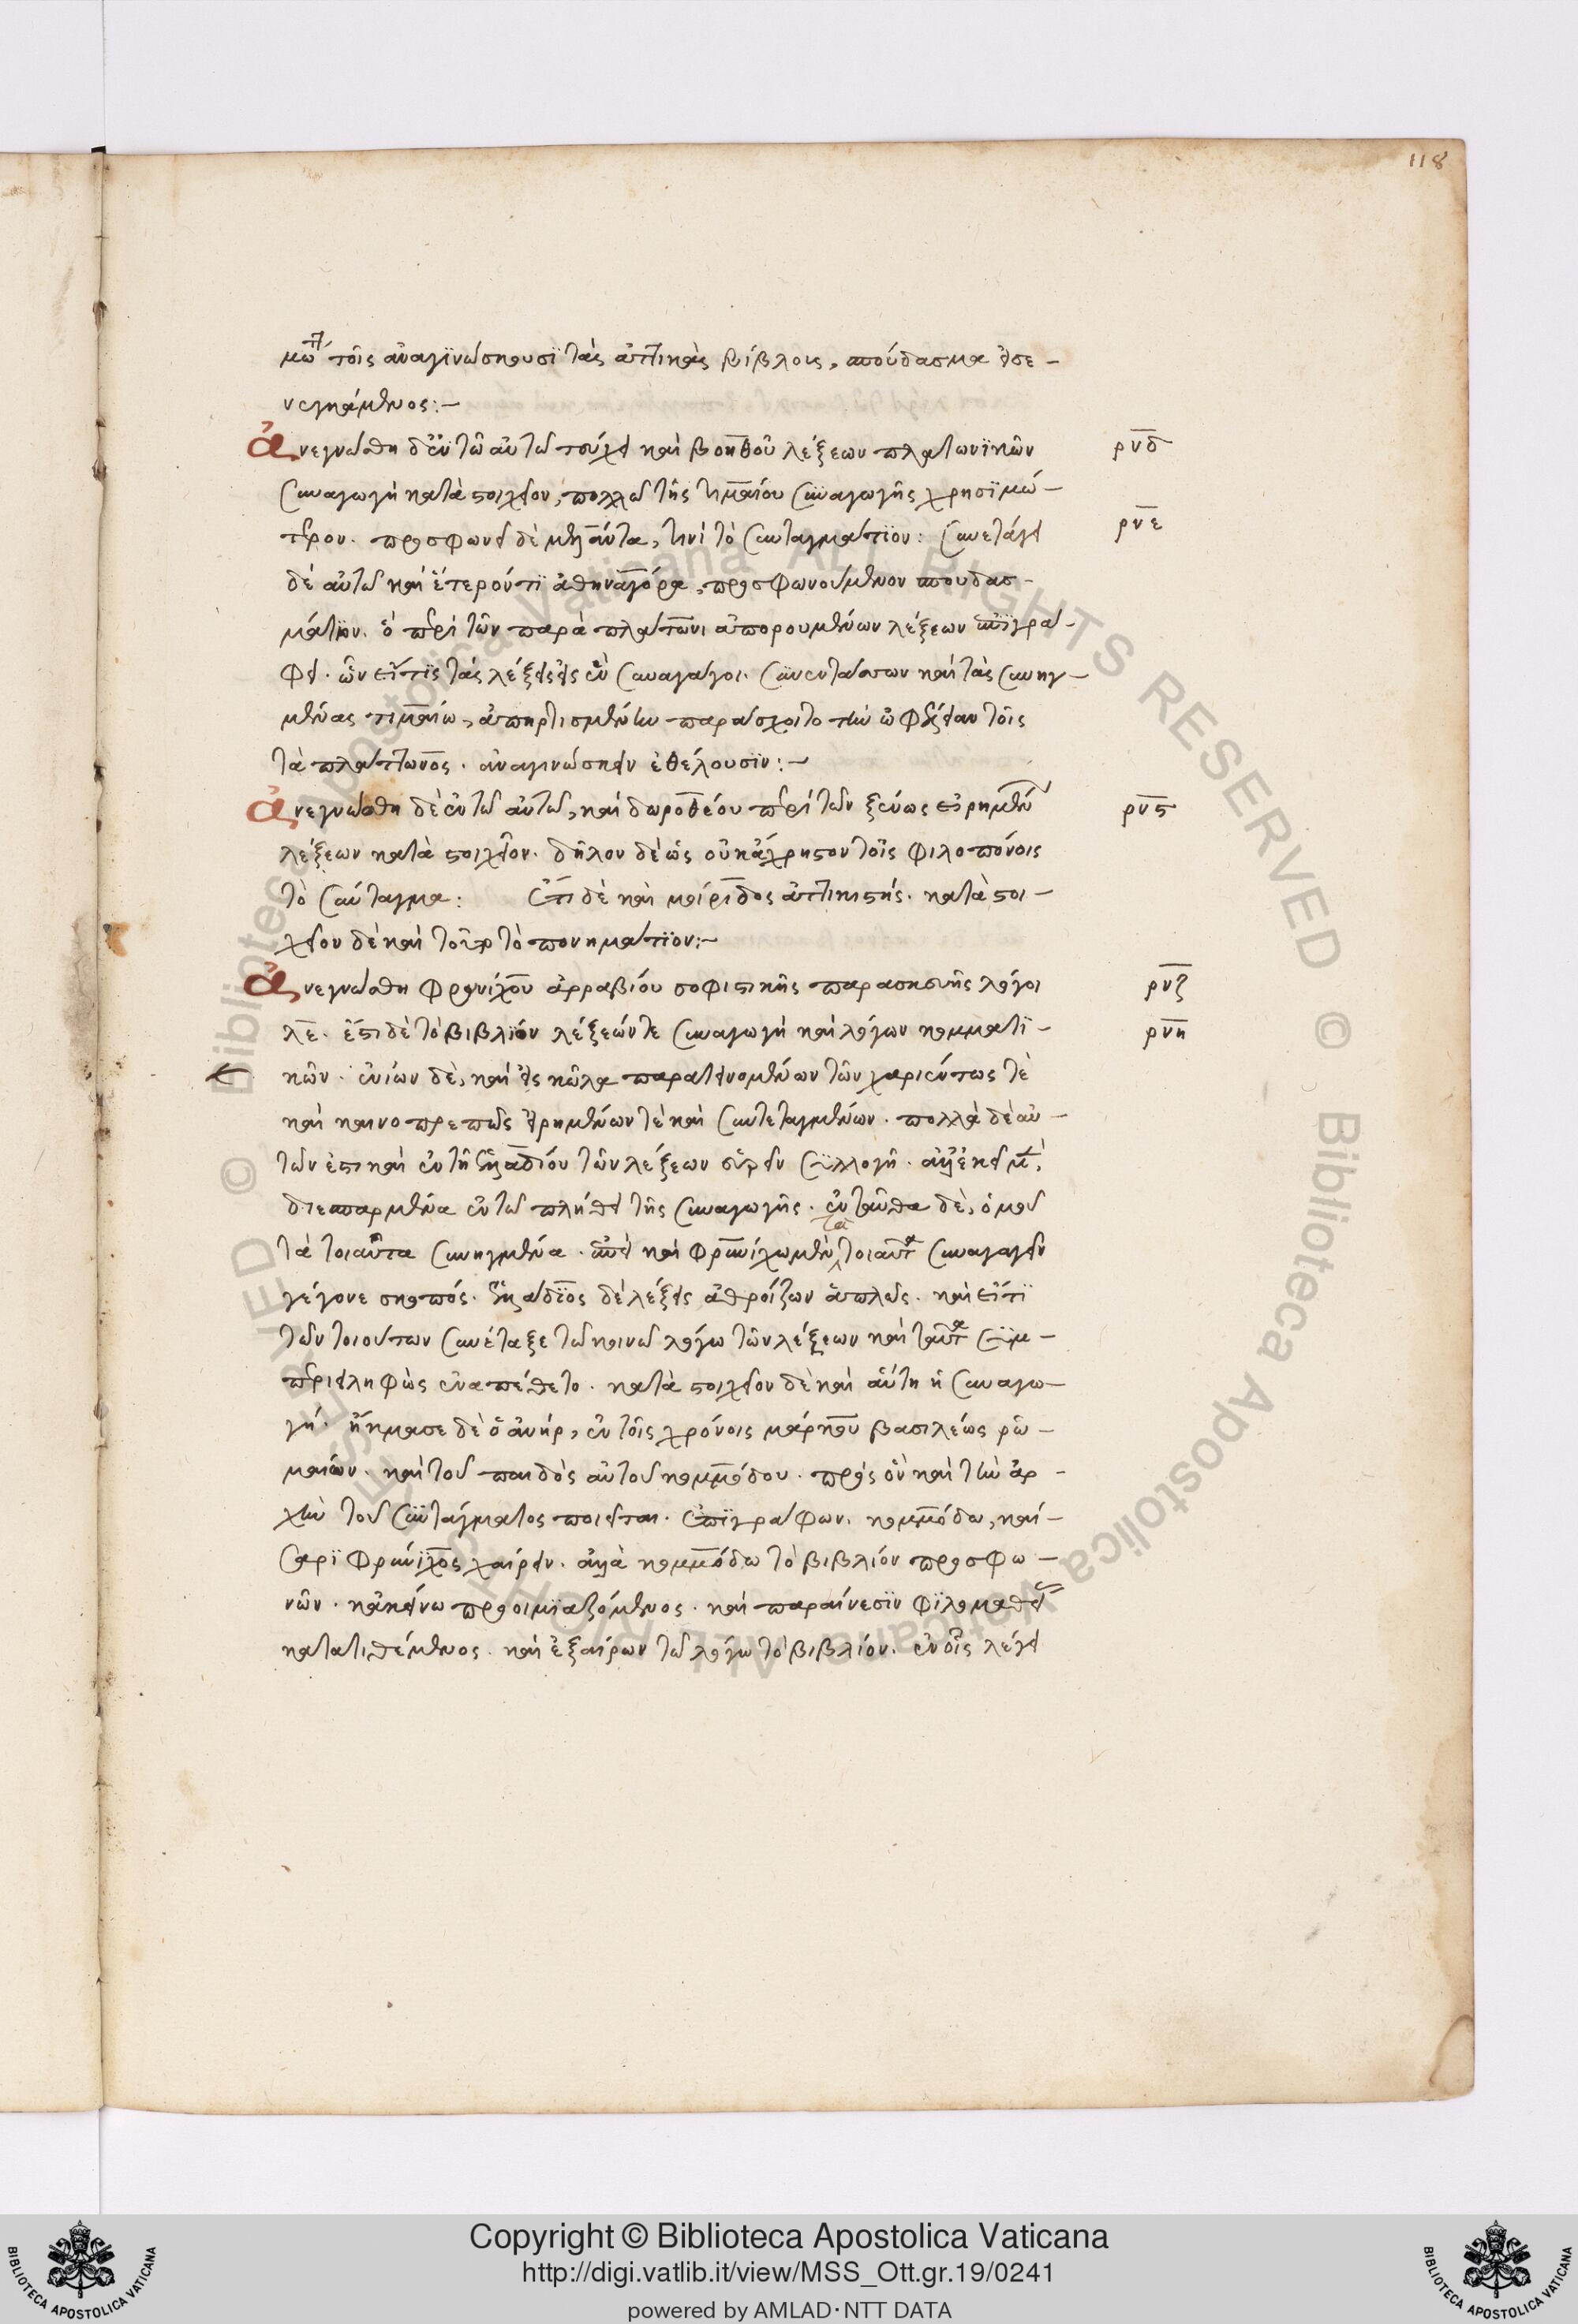 118
μώτ τοῖς ἀναγινώσκουσι τὰς ἀττικὰς βίβλους, σπούδασμα εἰσε-
νεγκάμενος:-
ἀνεγνώσθη δ' ἐν τῶ αὐτῶ τεύχει καὶ βοηθοῦ λέξεων πλατωνϊκῶν ρνδ
συναγωγὴ κατὰ στοιχεῖον, πολλῶ τῆς τιμαίου συναγωγῆς χρησϊμώ-
τερον. προσφωνεῖ δὲ μελάντα, τινὶ τὸ συνταγμάτϊον: συνετάγη ρνε
δὲ αὐτῶ καὶ ἕτερόν τϊ ἀθηναγόρα, προσφωνούμενον σπουδασ-
μάτιον. ὁ περὶ τῶν παρὰ πλάτωνι ἀπορουμένων λέξεων ἐπϊγρά-
φει. ὧν εἴ τϊς τὰς λέξεις εἰς ἓν συναγάγοι. συνεντάσσων καὶ τὰς συνηγ-
μένας τιμαίω, ἀπηρτισμένην παράσχοιτο τὴν ὠφέλειαν τοῖς
τὰ πλάτωνος. ἀναγινώσκειν ἐθέλουσϊν:-
ἀνεγνώσθη δὲ ἐν τῶ αὐτῶ, καὶ δωροθέου περὶ τῶν ξένως εἰρημέν ρνϛ
λέξεων κατὰ στοιχεῖον. δῆλον δὲ ὡς οὐκ ἄχρηστον τοῖς φιλοπόνοις
τὸ σύνταγμα: Ἔτι δὲ καὶ μοίριδος ἀττικιστής. κατὰ στοι-
χεῖον δὲ καὶ τοῦτο τὸ πονημάτϊον:-
ἀνεγνώσθη φρυνίχου ἀρραβίου σοφιστικῆς παρασκευῆς λόγοι ρνζ
λε. ἔστι δὲ τὸ βιβλίον λέξεών τε συναγωγὴ καὶ λόγων κομματϊ- ρνη
κῶν. ἐνίων δὲ, καὶ εἰς κῶλα παρατεινομένων τῶν χαριέντως τὲ
καὶ καινοπρεπῶς εἰρημένων τὲ καὶ συντεταγμένων. πολλὰ δὲ αὐ-
τῶν ἐστι καὶ ἐν τῆ ἑλλαδίου τῶν λέξεων εὑρεῖν συλλογῆ. ἀλλ' ἐκεῖ μὲν,
διεσπαρμένα ἐν τῶ πλήθει τῆς συναγωγῆς. ἐνταῦθα δὲ, ὁμοῦ
τὰ τοιαῦτα συνηγμένα. ἐπεὶ καὶ φρυνίχω μὲν τὰ τοιαῦτα συναγαγεῖν
γέγονε σκοπός. ἑλλάδϊος δὲ λέξεις ἀθροίζων ἁπλῶς. καὶ εἴ τϊ
τῶν τοιούτων συνέταξε τῶ κοινῶ λόγω τῶν λέξεων καὶ ταῦτα συμ-
περιειληφὼς ἐναπέθετο. κατὰ στοιχεῖον δὲ καὶ αὕτη ἡ συναγω-
γή. ἤκμασε δὲ ὁ ἀνὴρ, ἐν τοῖς χρόνοις μάρκου βασιλέως ρω-
μαίων. καὶ τοῦ παιδὸς αὐτοῦ κομμόδου. πρὸς ὃν καὶ τὴν ἀρ-
χὴν τοῦ συντάγματος ποιεῖται. ἐπϊγράφων. κομμόδω, καί-
σαρϊ φρύνιχος χαίρειν. ἀλλὰ κομμόδω τὸ βιβλίον προσφω-
νῶν. κἀκείνω προοιμϊαζόμενος. καὶ παραίνεσϊν φϊλομαθεί
κατατιθέμενος. καὶ ἐξαίρων τῶ λόγω τὸ βιβλίον. ἐν οἷς λέγει
Copyright © Biblioteca Apostolica Vaticana
http://digi.vatlib.it/view/MSS_Ott.gr.19/0241
powered by AMLAD·NTT DATA